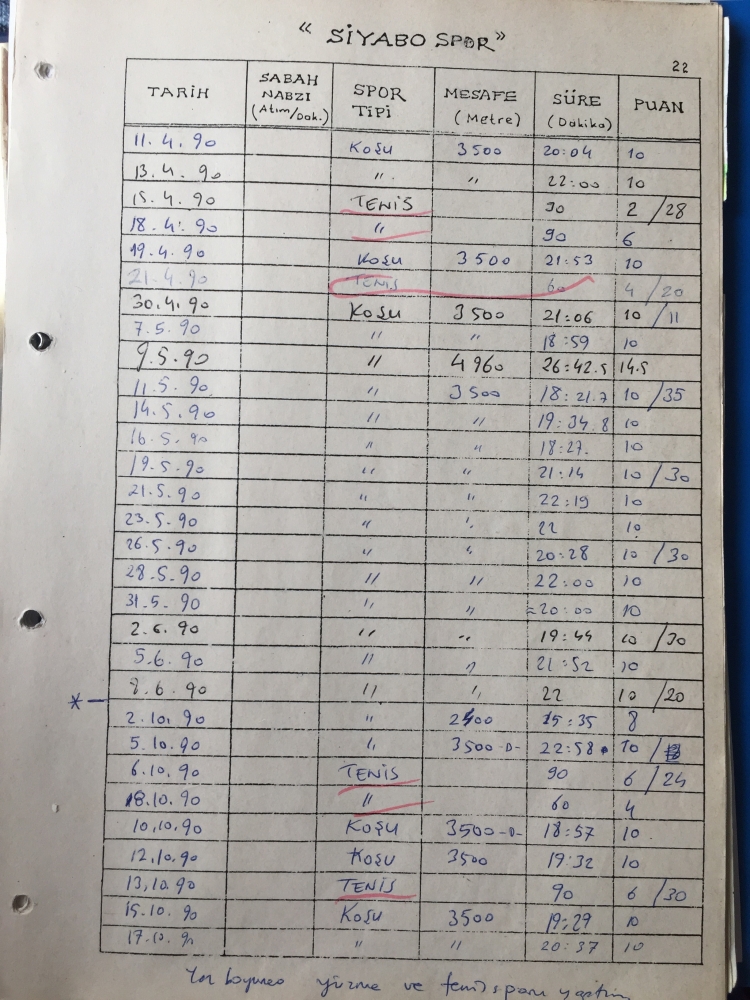 “ SİYABO SPOR”
22
TARİH SABAH NABZI (Atım/Dak.) SPOR TİPİ MESAFE (Metre) SÜRE (Dakika) PUAN
11. 4. 90 KOŞU 3500 20:04 10
13. 4. 90 " " 22:00 10
15. 4. 90 TENİS 90 2 /28
18. 4. 90 " 90 6
19. 4. 90 KOŞU 3500 21:53 10
21. 4. 90 TENİS 60 4 /20
30. 4. 90 KOŞU 3500 21:06 10 /11
7. 5. 90 " " 18:59 10
9. 5. 90 " 4960 26:42.5 14.5
11. 5. 90 " 3500 18:21.7 10 /35
14. 5. 90 " " 19:34.8 10
16. 5. 90 " " 18:27. 10
19. 5. 90 " " 21:14 10 /30
21. 5. 90 " " 22:19 10
23. 5. 90 " " 22 10
26. 5. 90 " " 20:28 10 /30
28. 5. 90 " " 22:00 10
31. 5. 90 " " ≈20:00 10
2. 6. 90 " " 19:44 10 /30
5. 6. 90 " " 21:52 10
8. 6. 90 " " 22 10 /20
* —
2. 10. 90 " 2400 15:35 8
5. 10. 90 " 3500 -D- 22:58 10 /
6. 10. 90 TENİS 90 6 /24
8. 10. 90 " 60 4
10. 10. 90 KOŞU 3500 -D- 18:57 10
12. 10. 90 KOŞU 3500 19:32 10
13. 10. 90 TENİS 90 6 /30
15. 10. 90 KOŞU 3500 19:29 10
17. 10. 90 " " 20:37 10
Yaz boyunca yüzme ve tenis sporu yaptım